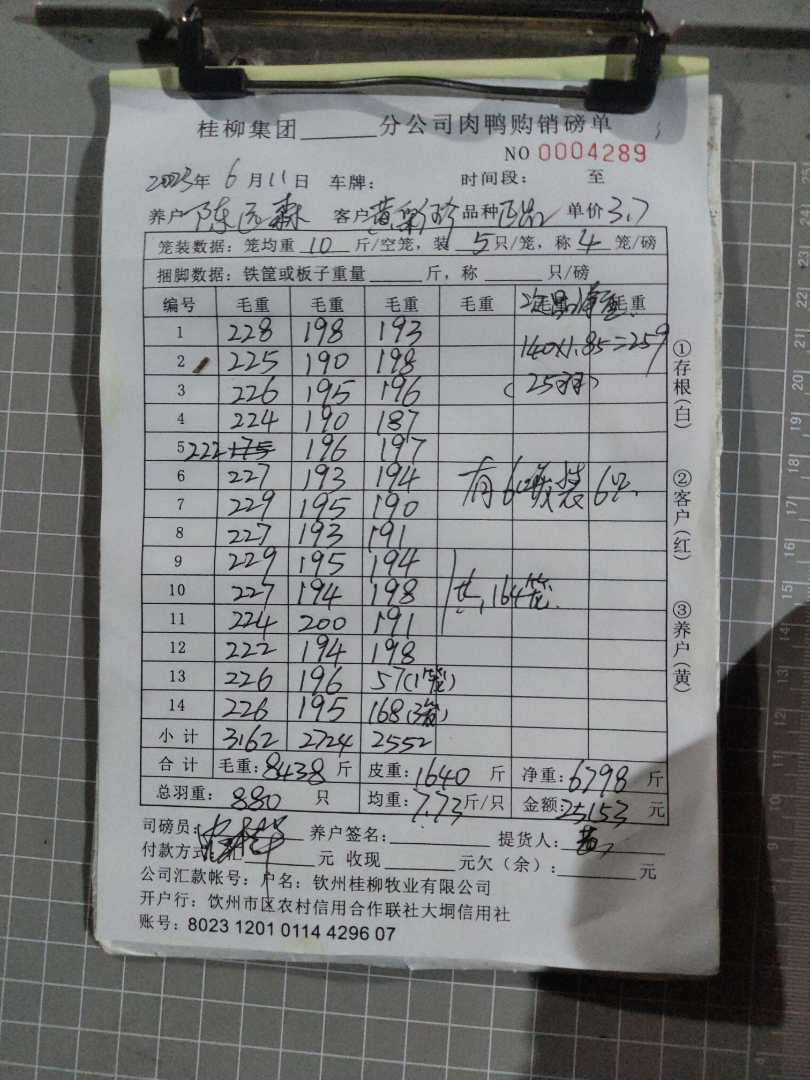 桂柳集团______分公司肉鸭购销磅单
NO 0004289
2023年 6月11日 车牌: 时间段: 至
养户 陈远森 客户 黄彩珍 品种 正品 单价 3.7
笼装数据: 笼均重 10 斤/空笼, 装 5 只/笼, 称 4 笼/磅
捆脚数据: 铁筐或板子重量 斤, 称 只/磅
编号 毛重 毛重 毛重 毛重 毛重
1 228 198 193
140×1.85=259
2 225 190 198
3 226 195 196 (25羽)
4 224 190 187
5 222 175 196 197
6 227 193 194 有6 装6只
7 229 195 190
8 227 193 191
9 229 195 194
10 227 194 198 共164笼
11 224 200 191
12 222 194 198
13 226 196 57(1笼)
14 226 195 168(3笼)
小计 3162 2724 2552
合计 毛重: 8438 斤 皮重: 1640 斤 净重: 6798 斤
总羽重: 880 只 均重: 7.73 斤/只 金额: 25153 元
司磅员: 养户签名: 提货人: 黄
付款方式: 汇 元 收现 元欠(余): 元
公司汇款帐号: 户名: 钦州桂柳牧业有限公司
开户行: 钦州市区农村信用合作联社大垌信用社
账号: 8023 1201 0114 4296 07
①存根(白)
②客户(红)
③养户(黄)